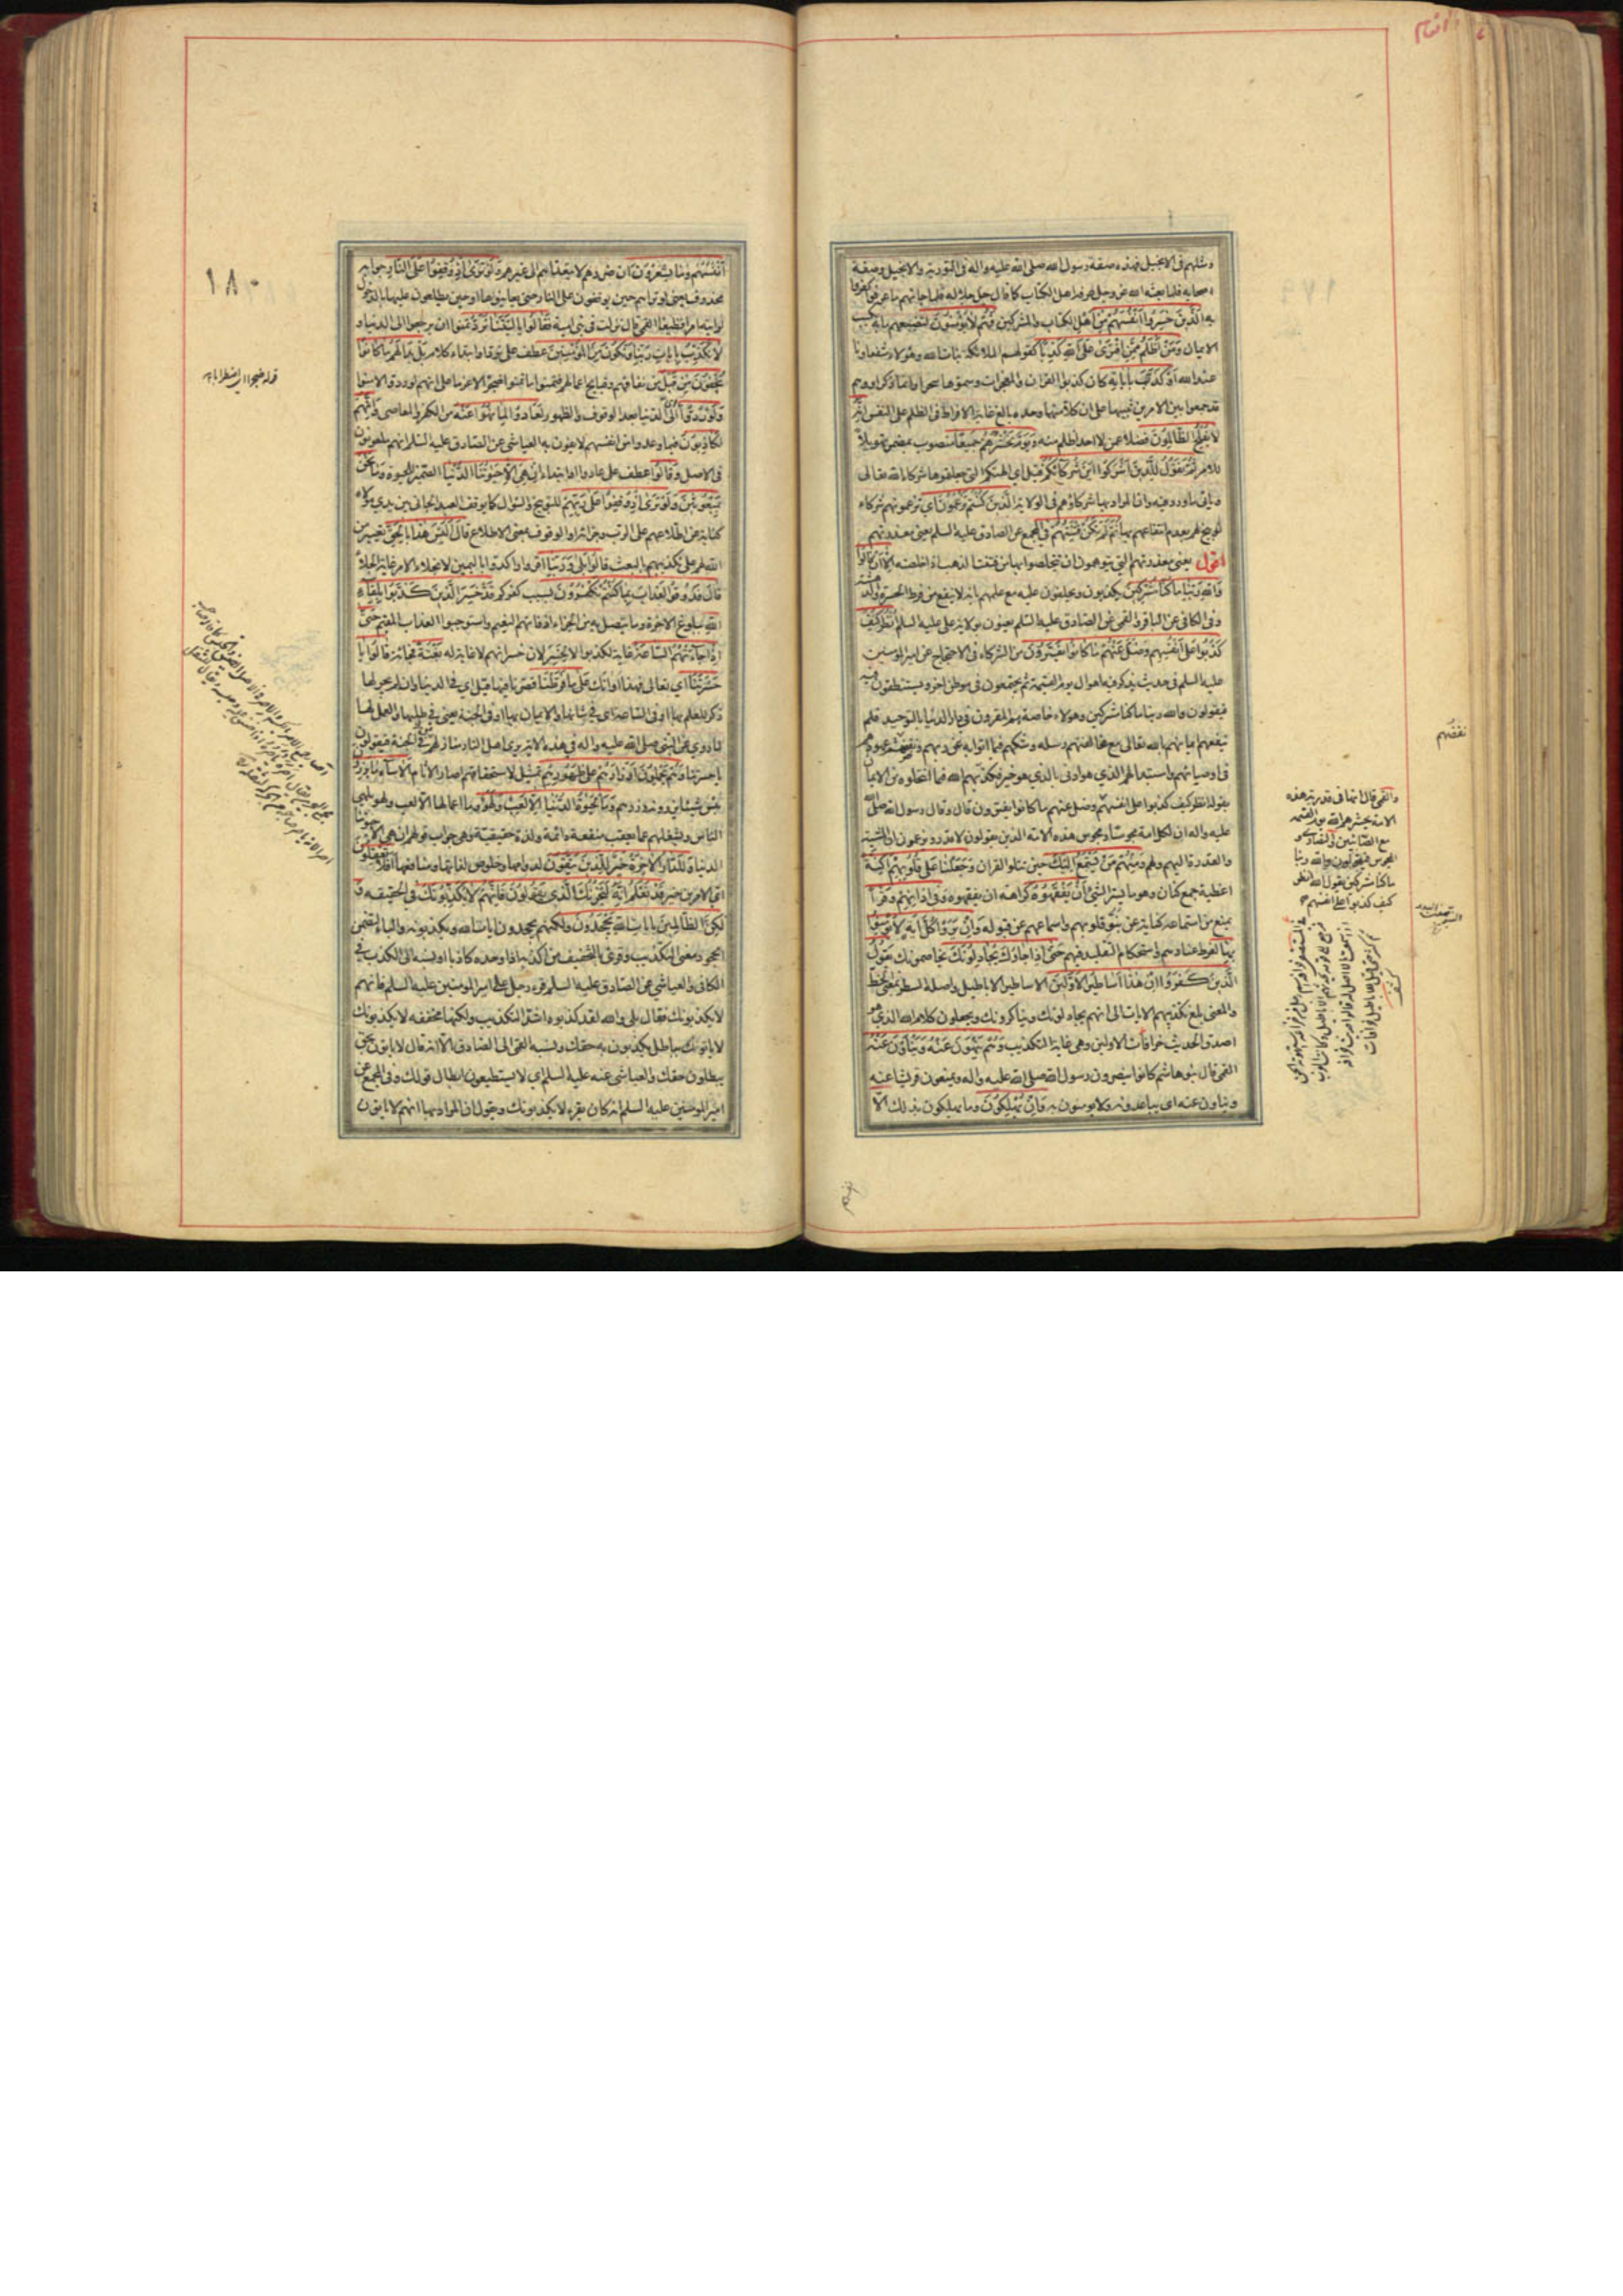 الانعام
ومثلهم في الانجيل فهذه صفة رسول الله صلى الله عليه واله في التورية والانجيل وصفة
اصحابه فلما بعثه الله عز وجل عرفه اهل الكتاب كما قال جل جلاله فلما جاءهم ما عرفوا كفروا
به الَّذِينَ خَسِرُوا أَنْفُسَهُمْ من اهل الكتاب والمشركين فَهُمْ لَا يُؤْمِنُونَ لتضييعهم ما به يكتسب
الايمان وَمَنْ أَظْلَمُ مِمَّنِ افْتَرَى عَلَى اللهِ كَذِبًا كقولهم الملائكة بنات الله وهؤلاء شفعاؤنا
عند الله أَوْ كَذَّبَ بِآيَاتِهِ كان كذبوا القران والمعجزات وسموها سحرا وانما ذكر او وهم
قد جمعوا بين الامرين تنبيها على ان كلا منهما وحده بالغ غاية الافراط في الظلم على النفس إِنَّهُ
لَا يُفْلِحُ الظَّالِمُونَ فضلا عمن لا احد اظلم منه وَيَوْمَ نَحْشُرُهُمْ جَمِيعًا منصوب بمضمر تهويلا
للامر ثُمَّ نَقُولُ لِلَّذِينَ أَشْرَكُوا أَيْنَ شُرَكَاؤُكُمُ قيل اي الهتكم التي جعلتموها شركاء لله
ويأتي ما ورد فيه وان المراد بها شركاؤهم في الولاية الَّذِينَ كُنْتُمْ تَزْعُمُونَ اي تزعمونهم شركاء
ثُمَّ لَمْ تَكُنْ فِتْنَتُهُمْ في المجمع عن الصادق عليه السلم يعني معذرتهم
اقول يعني معذرتهم التي يتوهمون ان يتخلصوا بها من فتنت الذهب اذا خلصته إِلَّا أَنْ قَالُوا
وَاللهِ رَبِّنَا مَا كُنَّا مُشْرِكِينَ يكذبون ويحلفون عليه مع علمهم بانه لا ينفع من فرط الحيرة والدهشة
وفي الكافي عن الباقر والقمي عن الصادق عليه السلم يعنون بولاية علي عليه السلم انْظُرْ كَيْفَ
كَذَبُوا عَلَى أَنْفُسِهِمْ وَضَلَّ عَنْهُمْ مَا كَانُوا يَفْتَرُونَ من الشركاء في الاحتجاج عن امير المؤمنين
عليه السلم في حديث يذكر فيه اهوال يوم القيمة ثم يجتمعون في موطن اخر ويستنطقون فيه
فيقولون والله ربنا ما كنا مشركين وهؤلاء خاصة هم المقرون في دار الدنيا بالتوحيد فلم
ينفعهم ايمانهم بالله تعالى مع مخالفتهم رسله وشكهم فيما اتوا به عن ربهم ونقضهم عهودهم
في اوصيائهم واستبدالهم الذي هو ادنى بالذي هو خير فكذبهم الله فيما انتحلوه من الايمان
بقوله انظر كيف كذبوا على انفسهم وضل عنهم ما كانوا يفترون قال وقال رسول الله صلى الله
عليه واله ان لكل امة مجوسا ومجوس هذه الامة الذين يقولون لا قدر ويزعمون ان المشية
والقدرة اليهم ولهم وَمِنْهُمْ مَنْ يَسْتَمِعُ إِلَيْكَ حين تتلو القران وَجَعَلْنَا عَلَى قُلُوبِهِمْ أَكِنَّةً
اغطية جمع كنان وهو ما يستر الشيئ أَنْ يَفْقَهُوهُ كراهة ان يفقهوه وَفِي آذَانِهِمْ وَقْرًا
يمنع من استماعه كناية عن نبو قلوبهم واسماعهم عن قبوله وَإِنْ يَرَوْا كُلَّ آيَةٍ لَا يُؤْمِنُوا
بِهَا لفرط عنادهم واستحكام التقليد فيهم حَتَّى إِذَا جَاؤُكَ يُجَادِلُونَكَ يخاصمونك يَقُولُ
الَّذِينَ كَفَرُوا إِنْ هَذَا إِلَّا أَسَاطِيرُ الْأَوَّلِينَ الاساطير الاباطيل واصله السطر بمعنى الخط
والمعنى بلغ تكذيبهم الايات الى انهم يجادلونك ويناكرونك ويجعلون كلام الله الذي هو
اصدق الحديث خرافات الاولين وهي غاية التكذيب وَهُمْ يَنْهَوْنَ عَنْهُ وَيَنْأَوْنَ عَنْهُ
القمي قال بنو هاشم كانوا ينصرون رسول الله صلى الله عليه واله ويمنعون قريشا عنه
وينأون عنه اي يباعدونه ولا يؤمنون به وَإِنْ يُهْلِكُونَ وما يهلكون بذلك إِلَّا
نقضهم
والقمي قال انها في قدرية هذه
الامة يحشرهم الله يوم القيمة
مع الصابئين والنصارى و
المجوس فيقولون والله ربنا
ما كنا مشركين يقول الله انظر
كيف كذبوا على انفسهم
انفسهم
١٨٠
أَنْفُسَهُمْ وَمَا يَشْعُرُونَ ان ضررهم لا يتعداهم الى غيرهم وَلَوْ تَرَى إِذْ وُقِفُوا عَلَى النَّارِ جوابه
محذوف يعني لو تريهم حين يوقفون على النار حتى يعاينوها او حين يطلعون عليها بالدخول
لرايت امرا فظيعا القمي قال نزلت في بني امية فَقَالُوا يَا لَيْتَنَا نُرَدُّ تمنوا ان يرجعوا الى الدنيا وَ
لَا نُكَذِّبَ بِآيَاتِ رَبِّنَا وَنَكُونَ مِنَ الْمُؤْمِنِينَ عطف على نرد او ابتداء كلام بَلْ بَدَا لَهُمْ مَا كَانُوا
يُخْفُونَ مِنْ قَبْلُ من نفاقهم وقبايح اعمالهم فتمنوا ما تمنوا ضجرا لا عزما على انهم لو ردوا لامنوا
وَلَوْ رُدُّوا الى الدنيا بعد الوقوف والظهور لَعَادُوا لِمَا نُهُوا عَنْهُ من الكفر والمعاصي وَإِنَّهُمْ
لَكَاذِبُونَ فيما وعدوا من انفسهم لا يفون به العياشي عن الصادق عليه السلم انهم ملعونون
في الاصل وَقَالُوا عطف على عادوا او ابتداء إِنْ هِيَ إِلَّا حَيَوتُنَا الدُّنْيَا الضمير للحيوة وَمَا نَحْنُ
بِمَبْعُوثِينَ وَلَوْ تَرَى إِذْ وُقِفُوا عَلَى رَبِّهِمْ للتوبيخ والسؤال كما يوقف العبد الجاني بين يدي مولاه
كناية عن اطلاعهم على الرب وجزائه او الوقوف بمعنى الاطلاع قَالَ أَلَيْسَ هَذَا بِالْحَقِّ تعيير من
الله لهم على تكذيبهم بالبعث قَالُوا بَلَى وَرَبِّنَا اقروا واكدوا باليمين لانجلاء الامر غاية الجلاء
قَالَ فَذُوقُوا الْعَذَابَ بِمَا كُنْتُمْ تَكْفُرُونَ بسبب كفركم قَدْ خَسِرَ الَّذِينَ كَذَّبُوا بِلِقَاءِ
اللهِ ببلوغ الاخرة وما يتصل به من الجزاء اذ فاتهم النعيم واستوجبوا العذاب المقيم حَتَّى
إِذَا جَاءَتْهُمُ السَّاعَةُ غاية لكذبوا لا لخسر لان خسرانهم لا غاية له بَغْتَةً فجائة قَالُوا يَا
حَسْرَتَنَا اي تعالي فهذا اوانك عَلَى مَا فَرَّطْنَا قصرنا فِيهَا قيل اي في الدنيا وان لم يجر لها
ذكر للعلم بها او في الساعة اي في شانها والايمان بها او في الجنة يعني في طلبها والعمل لها
لما روي عن النبي صلى الله عليه واله في هذه الاية يرى اهل النار منازلهم من الجنة فيقولون
يا حسرتنا وَهُمْ يَحْمِلُونَ أَوْزَارَهُمْ عَلَى ظُهُورِهِمْ تمثيل لاستحقاقهم اصار الاثام أَلَا سَاءَ مَا يَزِرُونَ
بئس شيئا يزرونه وزرهم وَمَا الْحَيَوةُ الدُّنْيَا إِلَّا لَعِبٌ وَلَهْوٌ وما اعمالها الا لعب ولهو يلهي
الناس ويشغلهم عما يعقب منفعة دائمة ولذة حقيقية وهي جواب قولهم ان هي الا حيوتنا
الدنيا وَلَلدَّارُ الْآخِرَةُ خَيْرٌ لِلَّذِينَ يَتَّقُونَ لدوامها وخلوص لذاتها ومنافعها أَفَلَا تَعْقِلُونَ
اي الامرين خير قَدْ نَعْلَمُ إِنَّهُ لَيَحْزُنُكَ الَّذِي يَقُولُونَ فَإِنَّهُمْ لَا يُكَذِّبُونَكَ في الحقيقة وَ
لَكِنَّ الظَّالِمِينَ بِآيَاتِ اللهِ يَجْحَدُونَ ولكنهم يجحدون بايات الله ويكذبونه والباء لتضمن
الجحود معنى التكذيب وقرئ بالتخفيف من اكذبه اذا وجده كاذبا او نسبه الى الكذب في
الكافي والعياشي عن الصادق عليه السلم قرء رجل على امير المؤمنين عليه السلم فانهم
لا يكذبونك فقال بلى والله لقد كذبوه اشد التكذيب ولكنها مخففة لا يكذبونك
لا يأتونك بباطل يكذبون به حقك ونسبه القمي الى الصادق الا انه قال لا يأتون بحق
يبطلون حقك والعياشي عنه عليه السلم اي لا يستطيعون ابطال قولك وفي المجمع عن
امير المؤمنين عليه السلم انه كان يقرء لا يكذبونك ويقول ان المراد بها انهم لا يأتون